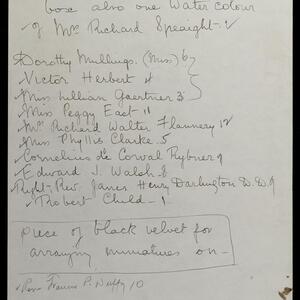 box also one Water colour
of Mrs Richard Speaight.
Dorothy Mullings. (Miss) 6
✓ Victor Herbert 4
Miss Lillian Gaertner 3
✓ Miss Peggy East 11
✓ Mrs Richard Walter Flannery 12
✓ Miss Phyllis Clarke. 5
✓ Cornelius de Corwal Rybner 9
✓ Edward J. Walsh. 8
Right-Rev. James Henry Darlington D.D.
✓ Robert Child - 1
piece of black velvet for
arranging miniatures on-
✓ Rev Francis P. Duffy 10